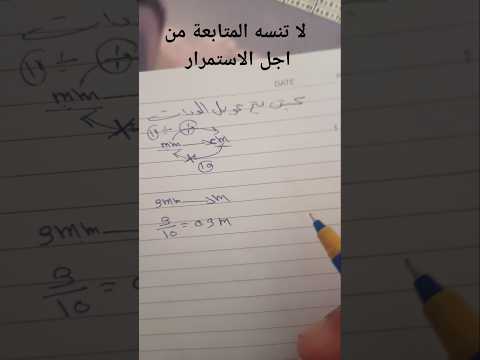 لا تنسه المتابعة من
اجل الاستمرار
DATE
كيف يتم تحويل الوحدات
10 ÷
mm → cm
×
10
9mm → M
9/10 = 0.9 M